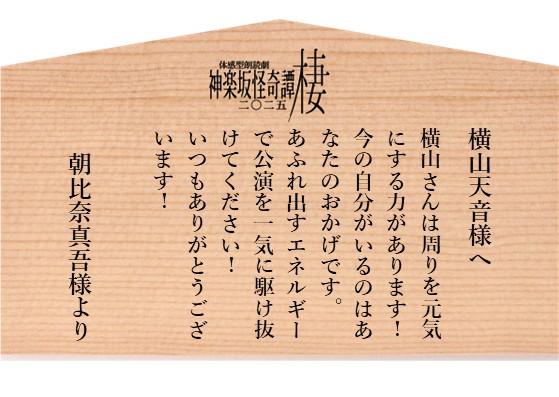 体感型朗読劇
神楽坂怪奇譚
棲
二〇二五
横山天音様へ
横山さんは周りを元気
にする力があります！
今の自分がいるのはあ
なたのおかげです。
あふれ出すエネルギー
で公演を一気に駆け抜
けてください！
いつもありがとうござ
います！
朝比奈真吾様より